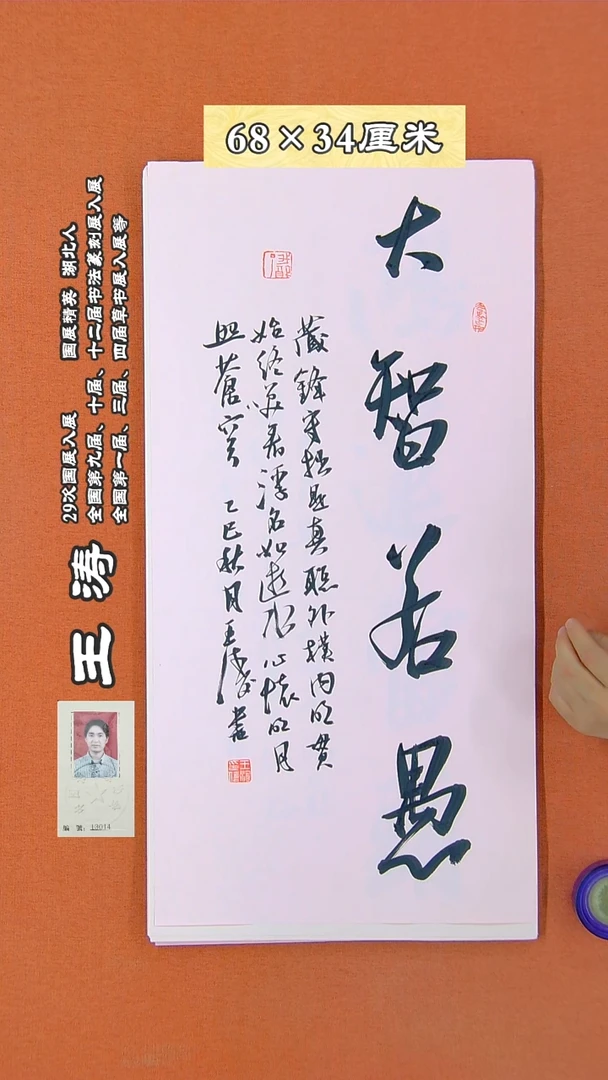 68×34厘米
大智若愚
藏锋守拙是真聪外朴内明贯
始终笑看浮名如逝水心怀明月
照苍穹 乙巳秋月王涛书
29次国展入展 国展精英 湖北人
全国第九届、十届、十二届书法篆刻展入展
全国第一届、三届、四届草书展入展等
王涛
编号：13014